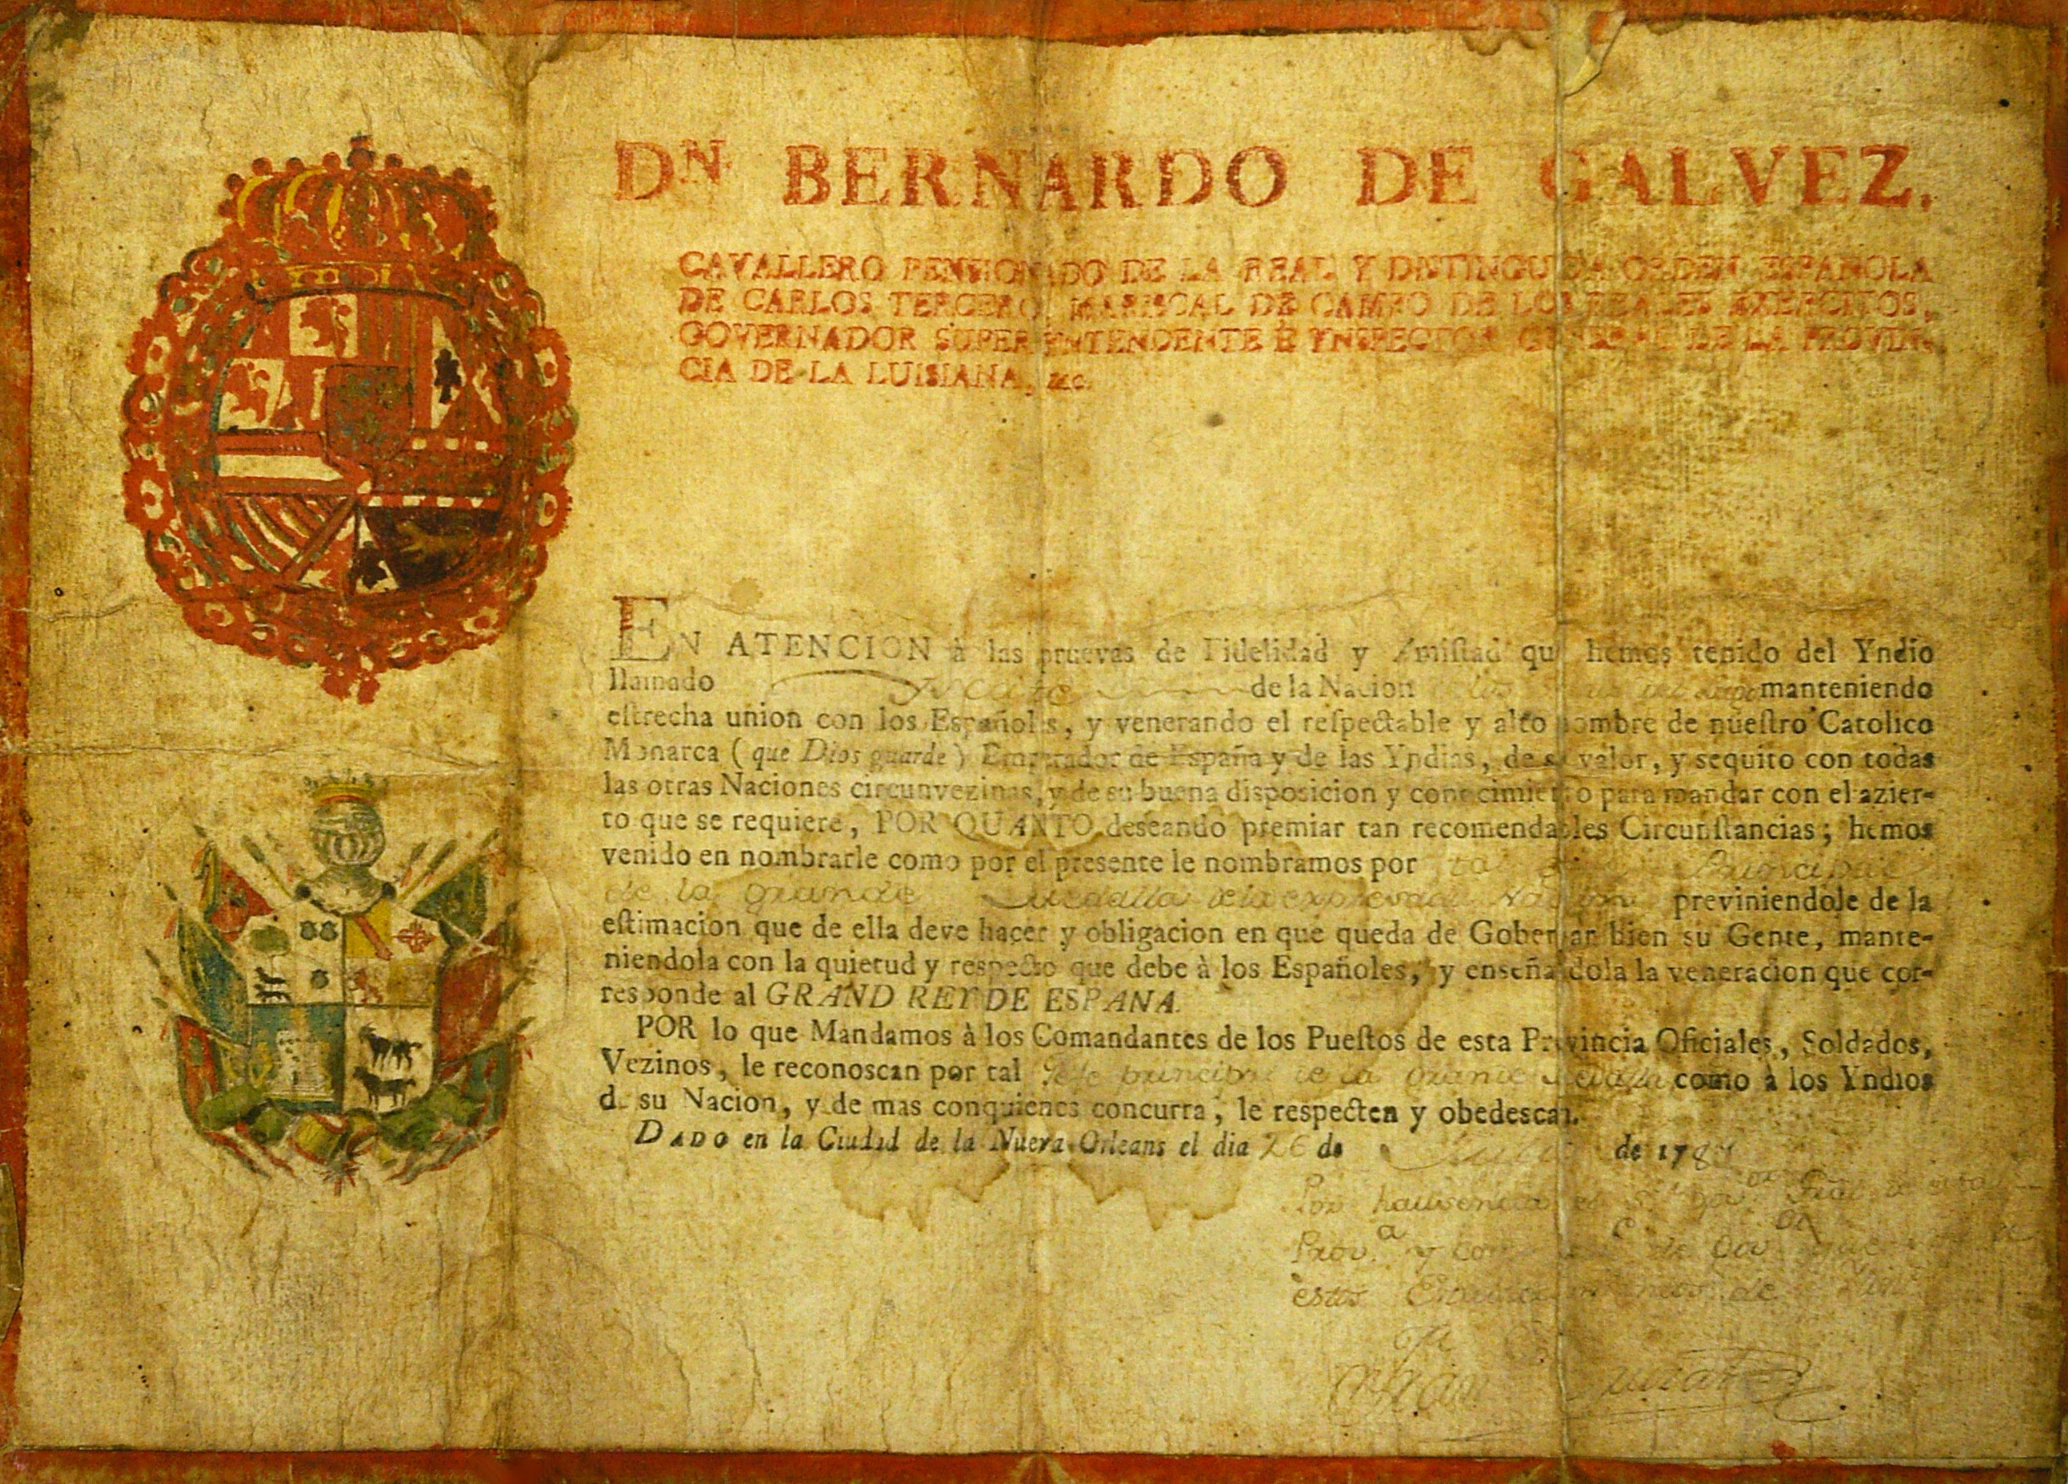 DN. BERNARDO DE GALVEZ,
CAVALLERO PENSIONADO DE LA REAL Y DISTINGUIDA ORDEN ESPAÑOLA
DE CARLOS TERCERO, MARISCAL DE CAMPO DE LOS REALES EXERCITOS,
GOVERNADOR SUPERINTENDENTE È YNSPECTOR GENERAL DE LA PROVIN-
CIA DE LA LUISIANA, &c.
EN ATENCION à las pruevas de Fidelidad y Amiſtad que hemos tenido del Yndio
llamado de la Nacion manteniendo
eſtrecha union con los Españoles, y venerando el reſpectable y alto nombre de nueſtro Catolico
Monarca (que Dios guarde) Emperador de España y de las Yndias, de su valor, y sequito con todas
las otras Naciones circunvezinas, y de su buena disposicion y conocimiento para mandar con el azier-
to que se requiere, POR QUANTO deseando premiar tan recomendables Circunſtancias; hemos
venido en nombrarle como por el presente le nombramos por tal Principal
de la grande Medalla de la expresada Nacion previniendole de la
estimacion que de ella deve hacer y obligacion en que queda de Gobernar bien su Gente, mante-
niendola con la quietud y respecto que debe à los Españoles, y enseñandola la veneracion que cor-
responde al GRAND REY DE ESPANA.
POR lo que Mandamos à los Comandantes de los Pueſtos de esta Provincia Oficiales, Soldados,
Vezinos, le reconoscan por tal Gefe principal de la grande Medalla como à los Yndios
de su Nacion, y de mas conquienes concurra, le respecten y obedescan.
DADO en la Ciudad de la Nueva Orleans el dia 26 de de 178
Por
Prov.a y de
estos de